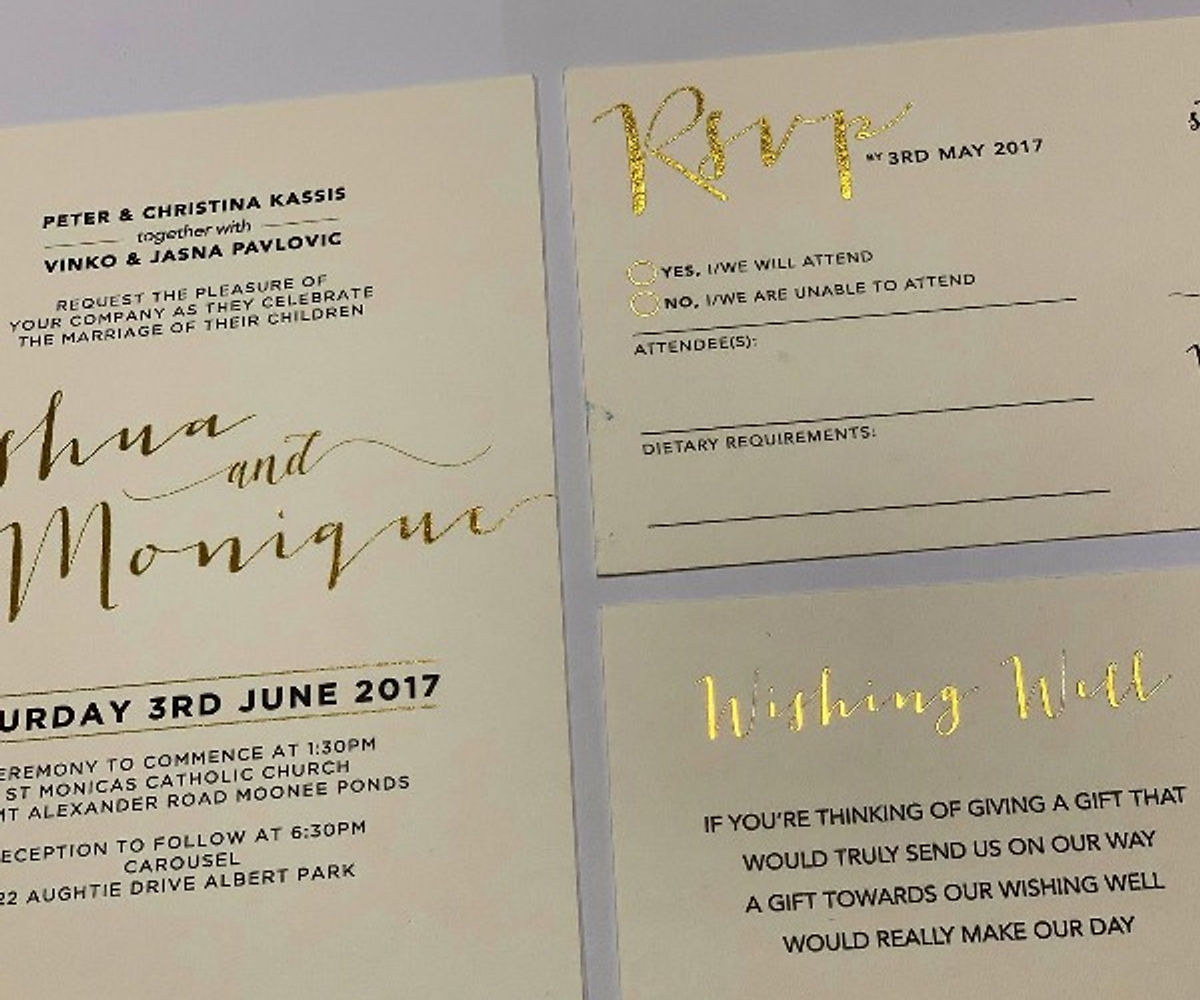 PETER & CHRISTINA KASSIS
together with
VINKO & JASNA PAVLOVIC
REQUEST THE PLEASURE OF
YOUR COMPANY AS THEY CELEBRATE
THE MARRIAGE OF THEIR CHILDREN
shua
and
Monique
URDAY 3RD JUNE 2017
EREMONY TO COMMENCE AT 1:30PM
ST MONICAS CATHOLIC CHURCH
MT ALEXANDER ROAD MOONEE PONDS
ECEPTION TO FOLLOW AT 6:30PM
CAROUSEL
22 AUGHTIE DRIVE ALBERT PARK
Rsvp BY 3RD MAY 2017
YES, I/WE WILL ATTEND
NO, I/WE ARE UNABLE TO ATTEND
ATTENDEE(S):
DIETARY REQUIREMENTS:
Wishing Well
IF YOU'RE THINKING OF GIVING A GIFT THAT
WOULD TRULY SEND US ON OUR WAY
A GIFT TOWARDS OUR WISHING WELL
WOULD REALLY MAKE OUR DAY